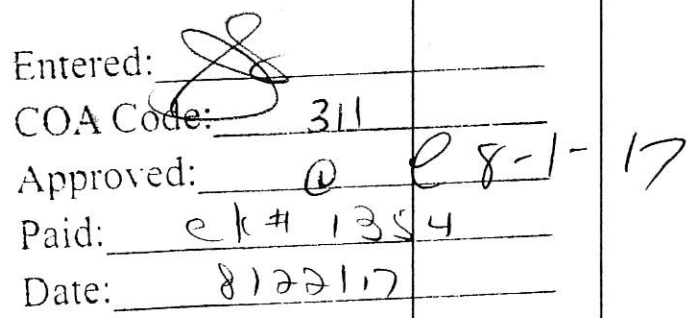 Entered:
COA Code: 311
Approved: 8-1-17
Paid: ck# 1354
Date: 8/22/17